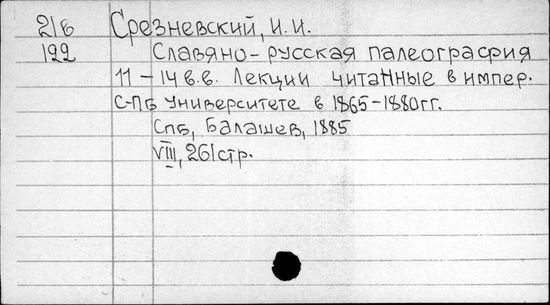 21в Срезневский, И.И.
122 Славяно-русская палеография
11-14 в.в. Лекции читанные в импер.
С-ПБ Университете в 1865-1880гг.
СПБ, Балашев, 1885
VIII, 261 стр.